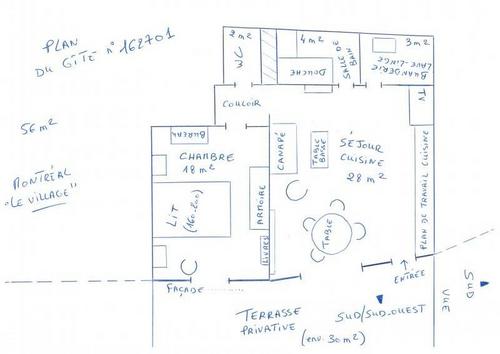 PLAN
DU GÎTE n° 162701
56 m²
MONTRÉAL
"LE VILLAGE"
2 m²
WC
4 m²
DOUCHE
SALLE DE
BAIN
3 m²
BUANDERIE
LAVE-LINGE
COULOIR
TV
BUREAU
CHAMBRE
18 m²
CANAPÉ
TABLE
BASSE
SÉJOUR
CUISINE
28 m²
PLAN DE TRAVAIL CUISINE
LIT
(160x200)
ARMOIRE
LIVRES
TABLE
ENTRÉE
FAÇADE
TERRASSE
PRIVATIVE
SUD/SUD-OUEST
(env. 30 m²)
SUD
VUE